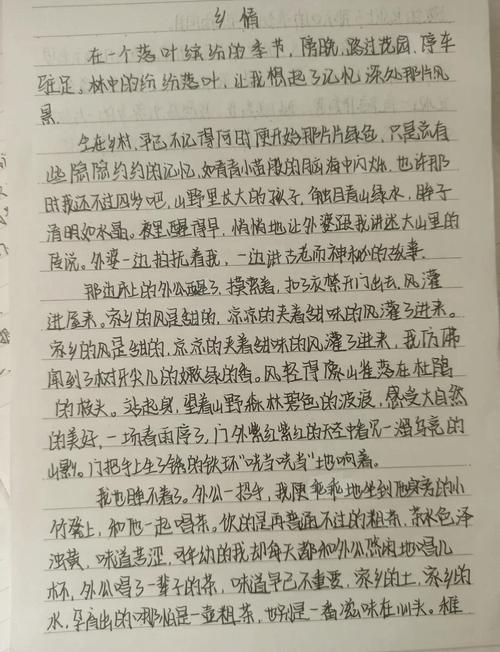 乡情
在一个落叶缤纷的季节，傍晚，路过花园，停车
驻足。林中的纷纷落叶，让我想起了记忆深处那片风
景。
今在乡村，早已不记得何时便开始那片片绿色，只是总有
些隐隐约约的记忆，如青青小苗般的脑海中闪烁，也许那
时我还不过四岁吧，山野里长大的孩子，触目青山绿水，眸子
清明如水晶。夜里醒得早，悄悄地让外婆跟我讲述大山里的
传说。外婆一边拍抚着我，一边讲古老而神秘的故事。
那边床上的外公醒了，摸索着，扣了衣襟开门出去，风灌
进屋来。家乡的风是甜的，凉凉的夹着甜味的风灌了进来。
家乡的风是甜的，凉凉的夹着甜味的风灌了进来，我仿佛
闻到了树牙尖儿的嫩绿的香。风轻得像山雀落在杜鹃
的枝头。站起身，望着山野森林碧色的波浪，感受大自然
的美好，一场春雨停了，门外紫红紫红的天空中看见一湿乌亮的
山影。门把手上生了锈的铁环“咣当咣当”地响着。
我也睡不着了。外公一招手，我便乖乖地坐到他身旁的小
竹凳上，和他一起喝茶。饮的是再普通不过的粗茶，茶水色泽
浊黄，味道苦涩，可年幼的我却每天都和外公悠闲地喝几
杯，外公喝了一辈子的茶，味道早已不重要，家乡的土，家乡的
水，孕育出的哪怕是一壶粗茶，也别是一番滋味在心头。推